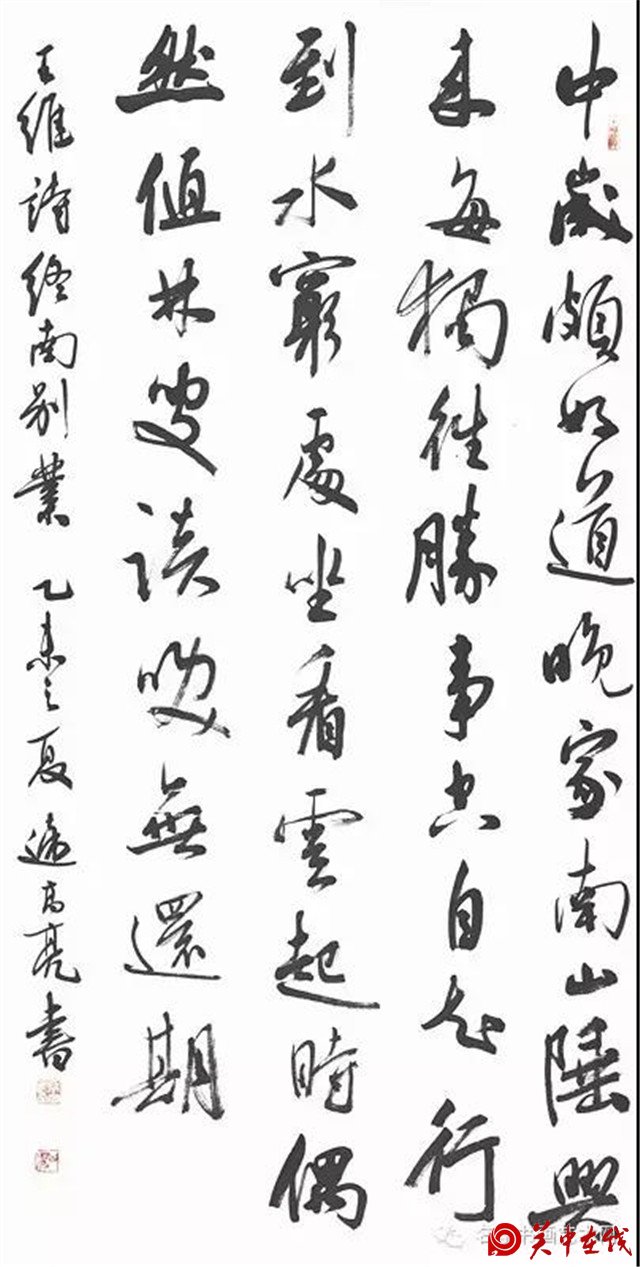 中歲頗好道晚家南山陲興
來每獨往勝事空自知行
到水窮處坐看雲起時偶
然值林叟談咲無還期
王維詩終南别業 乙未之夏 高亮書
关中在线